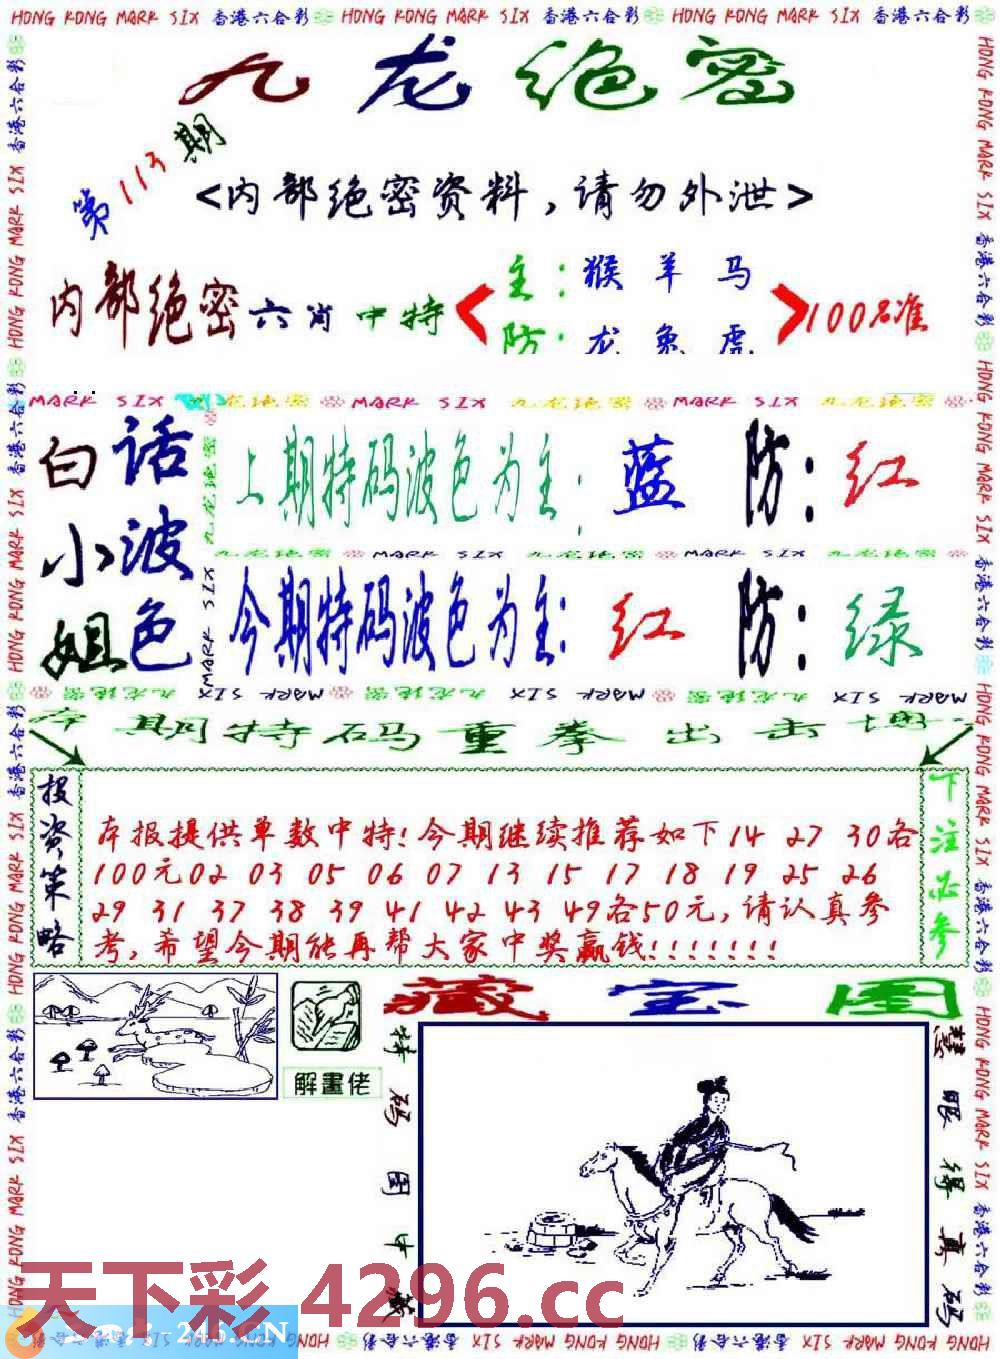 HONG KONG MARK SIX 香港六合彩 HONG KONG MARK SIX 香港六合彩 HONG KONG MARK SIX 香港六合彩
九龙绝密
第113期
<内部绝密资料,请勿外泄>
内部绝密六肖中特
主:猴羊马
防:龙兔虎
100%准
MARK SIX 九龙绝密 MARK SIX 九龙绝密 MARK SIX 九龙绝密
白小姐
话波色
上期特码波色为主:蓝 防:红
九龙绝密 MARK SIX 九龙绝密 MARK SIX 九龙绝密
今期特码波色为主:红 防:绿
九龙绝密 MARK SIX 九龙绝密 MARK SIX 九龙绝密 MARK SIX
本期特码重拳出击
投资策略
下注必参
本报提供单数中特!今期继续推荐如下14 27 30各
100元02 03 05 06 07 13 15 17 18 19 25 26
29 31 37 38 39 41 42 43 49各50元,请认真参
考,希望今期能再帮大家中奖赢钱!!!!!!!
藏宝图
解畫佬
特码图中藏
慧眼得真码
天下彩 4296.cc
246.CN